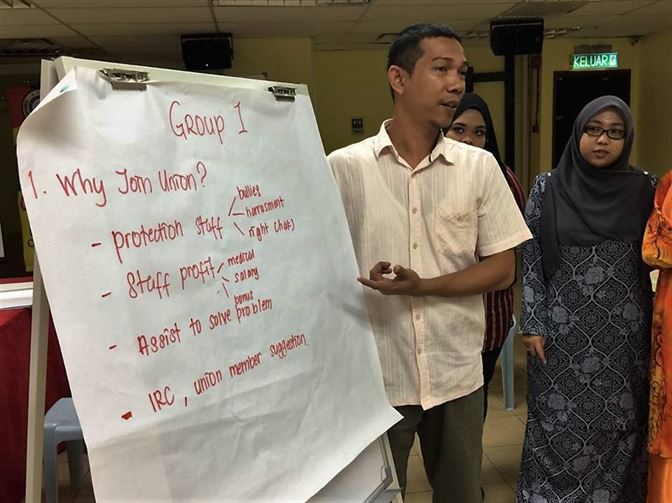 KELUAR
Group 1
1. Why Join Union?
- protection staff < bullied
harrasment
right (hat)
- staff profit < medical
salary
bonus
- Assist to solve problem
- IRC, union member suggestion.